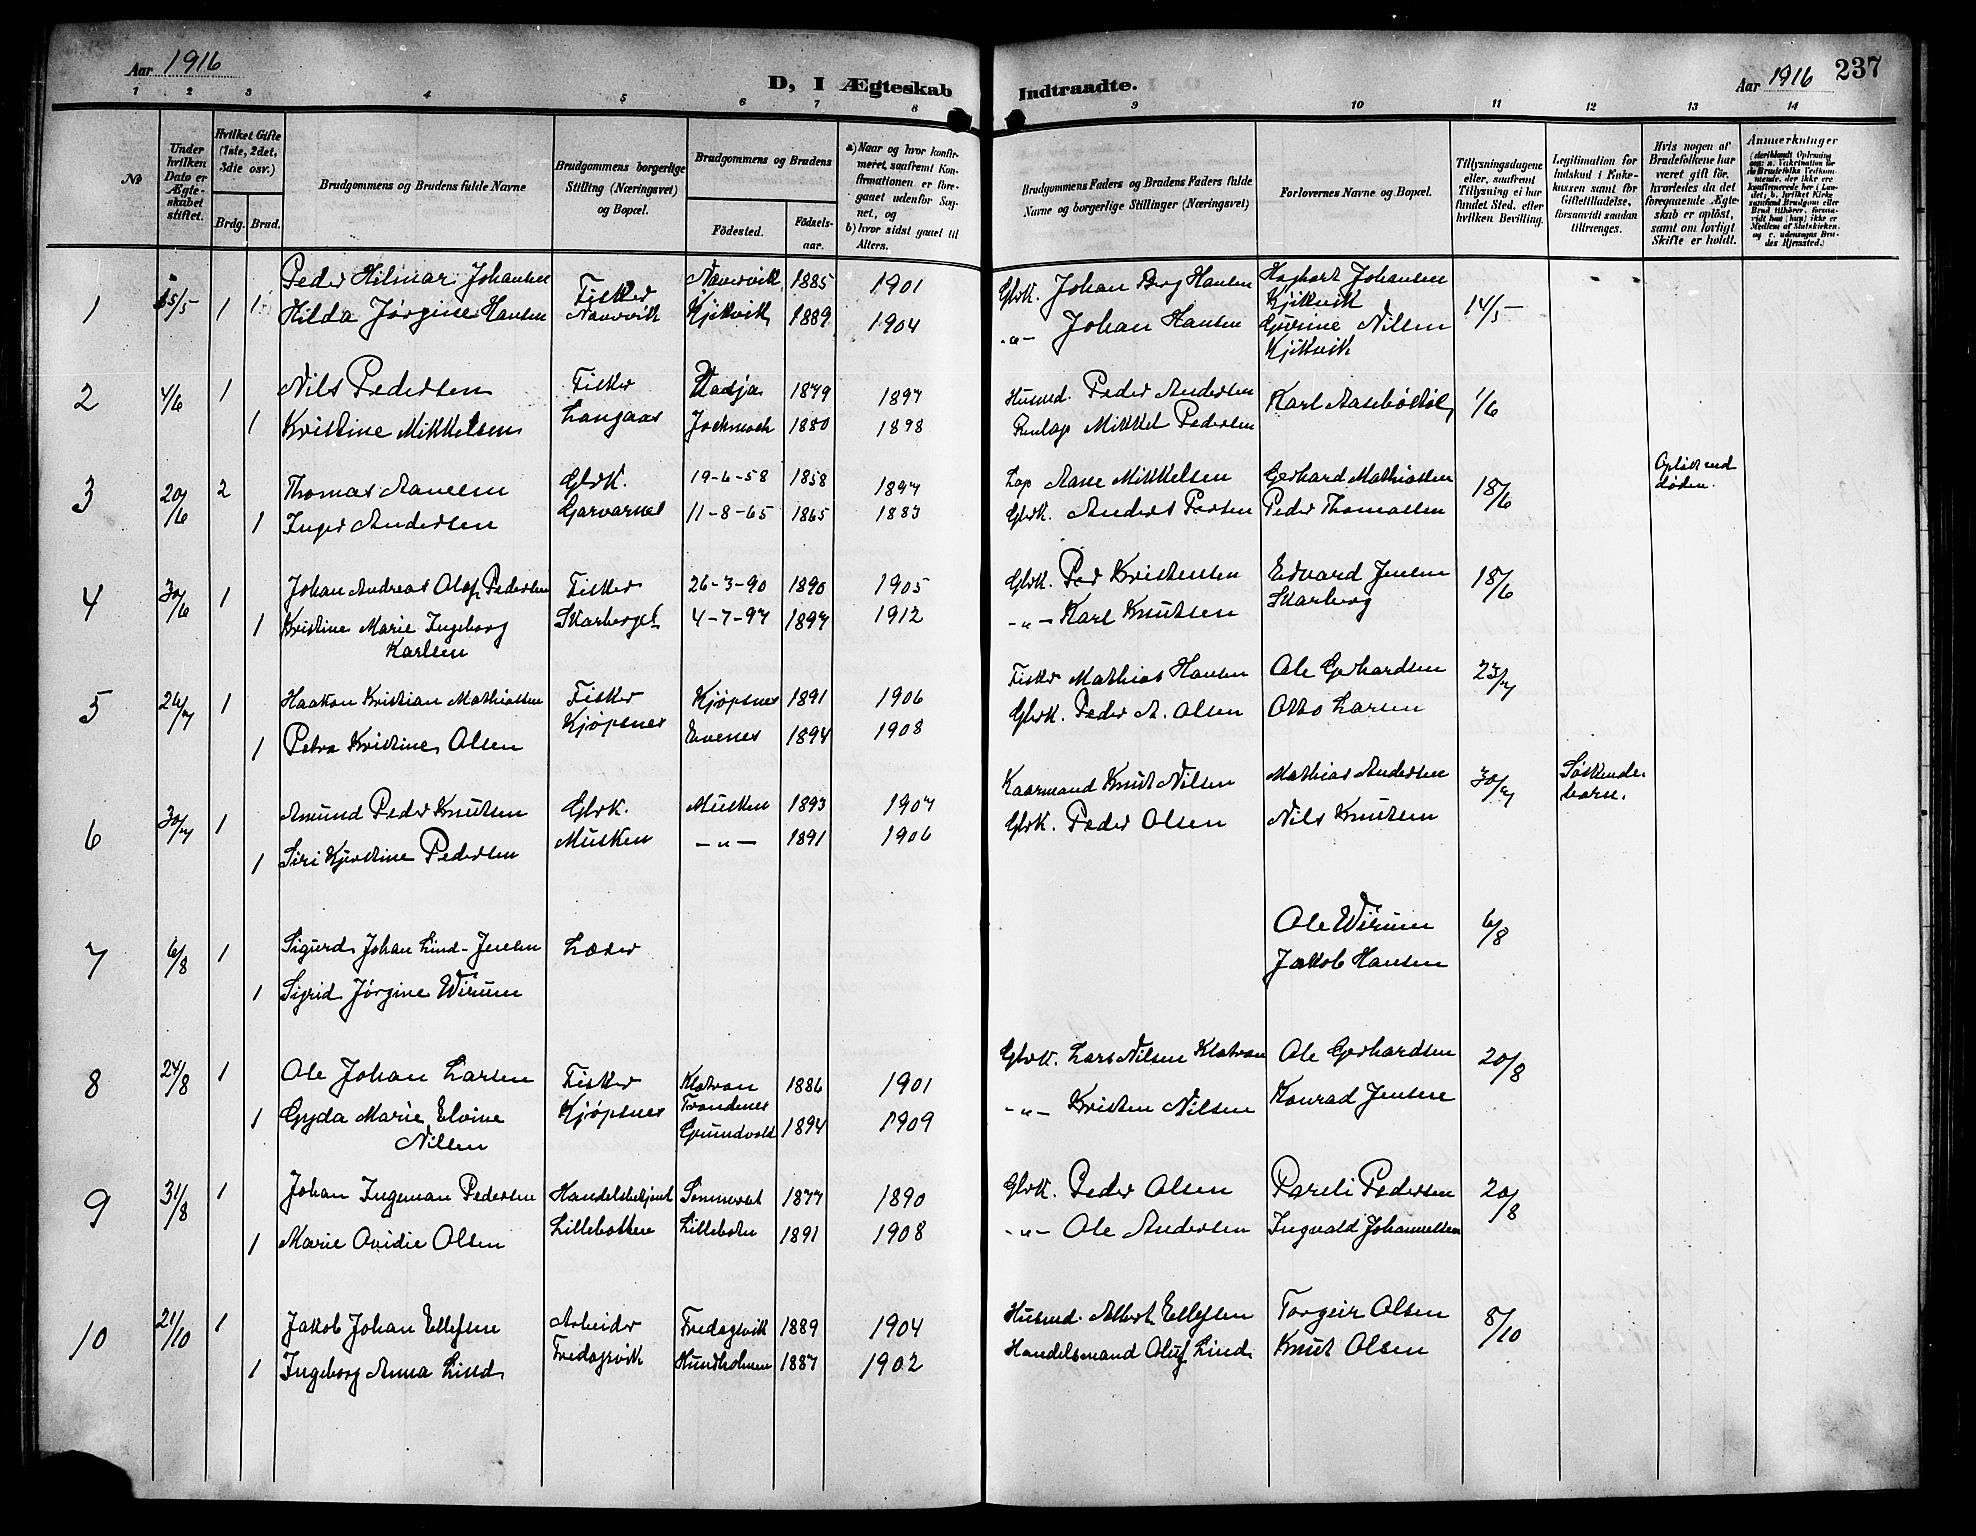 Aar 1916
D, I Ægteskab Indtraadte.
Aar 1916 237
1 2 3 4 5 6 7 8 9 10 11 12 13 14
№
Under hvilken Dato er Ægteskabet stiftet.
Hvilket Gifte (1ste, 2det, 3die osv.)
Brdg. Brud.
Brudgommens og Brudens fulde Navne
Brudgommens borgerlige Stilling (Næringsvei) og Bopæl.
Brudgommens og Brudens
Fødested.
Fødselsaar.
a) Naar og hvor konfirmeret, saafremt Konfirmationen er foregaaet udenfor Sognet, og
b) hvor sidst gaaet til Alters.
Brudgommens Faders og Brudens Faders fulde Navne og borgerlige Stillinger (Næringsvei)
Forlovernes Navne og Bopæl.
Tillysningsdagene eller, saafremt Tillysning ei har fundet Sted, efter hvilken Bevilling.
Legitimation for Indskud i Enkekassen samt for Giftetilladelse, forsaavidt saadan tiltrænges.
Hvis nogen af Brudefolkene har været gift før, hvorledes da det foregaaende Ægteskab er opløst, samt om lovligt Skifte er holdt.
Anmærkninger
1 25/5 1 Peder Hilmar Johansen Fisker Nævervik 1885 1901 Gbrk. Johan Berg Hansen Hagbart Johansen Kjikvik 14/5
1 Hilda Jørgine Hansen Nævervik Kjikvik 1889 1904 -"- Johan Hansen Gurine Nilsen Kjikvik
2 4/6 1 Nils Pedersen Fisker 1879 1897 Husmd. Peder Andersen Karl Aasebøstøl 1/6
1 Kristine Mikkelsen Langaas Jockmock 1880 1898 Renlap Mikkel Pedersen
3 20/6 2 Thomas Aanesen Gbrk. 19-6-58 1858 1897 Lap Aane Mikkelsen Gerhard Mathiassen 18/6 Opløst ved døden.
1 Inger Andersen Garvarnes 11-8-65 1865 1883 Gbrk. Anders Larsen Peder Thomassen
4 30/6 1 Johan Andreas Olaf Pedersen Fisker 26-3-90 1890 1905 Gbrk. Per Kristensen Edvard Jensen 18/6
1 Kristine Marie Ingeborg Karlsen Skarberget 4-7-97 1897 1912 -"- Karl Knutsen Skarberg
5 26/7 1 Haakon Kristian Mathiassen Fisker Kjøpsnes 1891 1906 Fisker Mathias Hansen Ole Gerhardsen 23/7
1 Petra Kristine Olsen Kjøpsnes Evenes 1894 1908 Gbrk. Peder A. Olsen Otto Larsen
6 30/7 1 Amund Peder Knutsen Gbrk. Musken 1893 1907 Kaarmand Knut Nilsen Mathias Andersen 30/7 Søskendebarn.
1 Siri Kjerstine Pedersen Musken -"- 1891 1906 Gbrk. Peder Olsen Nils Knutsen
7 6/8 1 Sigurd Johan Lind-Jensen Læder Ole Wirum 6/8
1 Sigrid Jørgine Wirum Jakob Hansen
8 24/8 1 Ole Johan Larsen Fisker Klatran 1886 1901 Gbrk. Lars Nilsen Klatran Ole Gerhardsen 20/8
1 Gyda Marie Elvine Nilsen Kjøpsnes Trondenes Grundvold 1894 1909 -"- Kristen Nilsen Konrad Jensen
9 31/8 1 Johan Ingeman Pedersen Handelsbetjent Sommerset 1877 1890 Gbrk. Peder Olsen Pareli Pedersen 20/8
1 Marie Ovidie Olsen Lillebotten Lillebotn 1891 1908 -"- Ole Andersen Ingvald Johannessen
10 21/10 1 Jakob Johan Ellefsen Arbeider Fredagsvik 1889 1904 Husmd. Albert Ellefsen Torgeir Olsen 8/10
1 Ingeborg Anna Lind Fredagsvik Hundholmen 1887 1902 Handelsmand Oluf Lind Knut Olsen